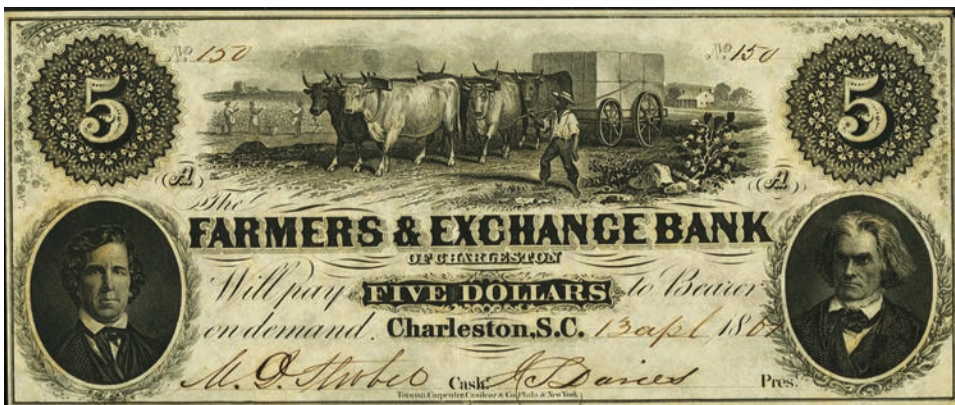 No 150 No 150
5 5
A A
The
FARMERS & EXCHANGE BANK
OF CHARLESTON
Will pay FIVE DOLLARS to Bearer
on demand. Charleston, S.C. 13 apl, 18
Cash. Pres.
Toppan, Carpenter, Casilear & Co. Phila. & New York.